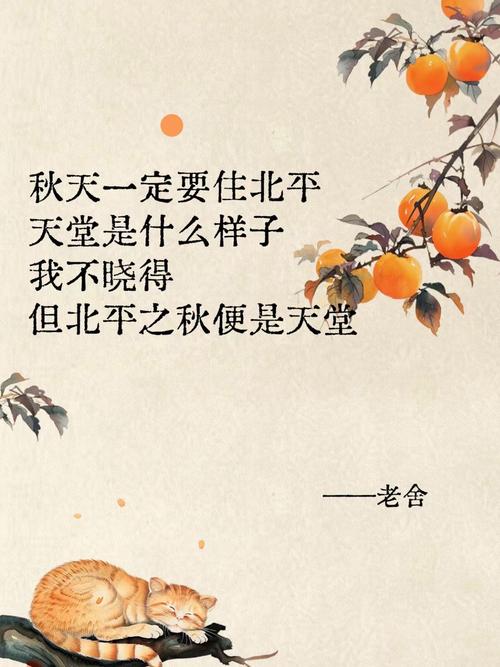 秋天一定要住北平
天堂是什么样子
我不晓得
但北平之秋便是天堂
——老舍